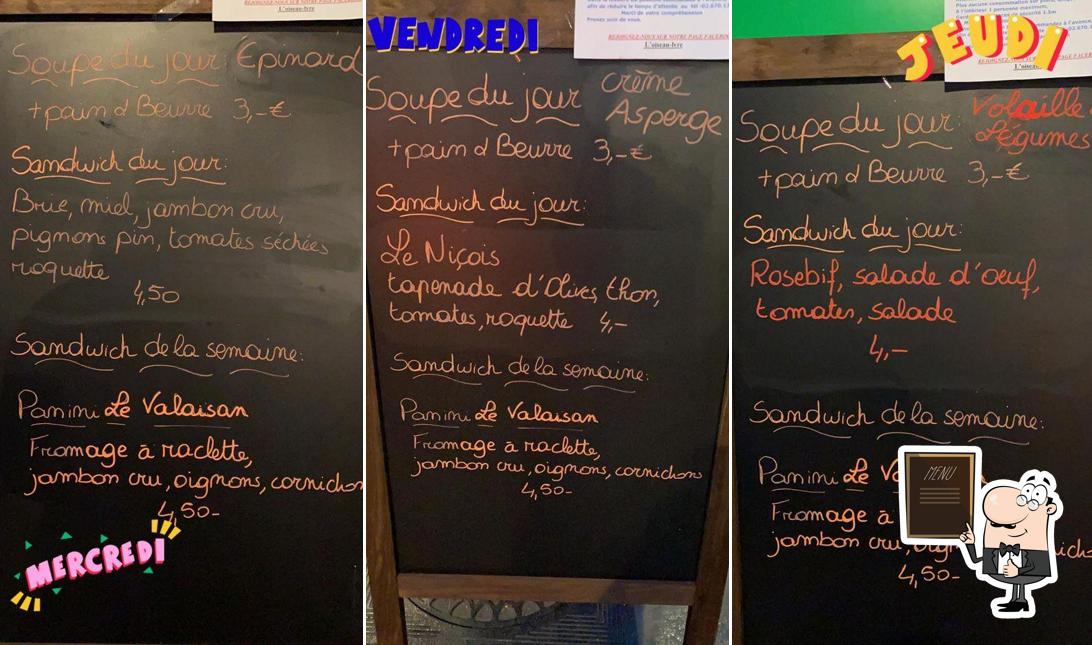 REJOIGNEZ-NOUS SUR NOTRE PAGE FACEBOOK
L'oiseau-lyre
Soupe du jour: Epinard
+ pain & Beurre 3,-€
Sandwich du jour:
Brie, miel, jambon cru,
pignons pin, tomates séchées
roquette
4,50
Sandwich de la semaine:
Panini Le Valaisan
Fromage à raclette,
jambon cru, oignons, cornichon
4,50-
MERCREDI
VENDREDI
afin de réduire le temps d'attente au tél :02.670.1
Merci de votre compréhension
Prenez soin de vous.
REJOIGNEZ-NOUS SUR NOTRE PAGE FACEBO
L'oiseau-lyre
Soupe du jour crème
Asperge
+ pain & Beurre 3,-€
Sandwich du jour:
Le Niçois
tapenade d'Olives, thon,
tomates, roquette 4,-
Sandwich de la semaine:
Panini Le Valaisan
Fromage à raclette,
jambon cru, oignons, cornichons
4,50-
JEUDI
Plus aucune consommation sur
à l'intérieur 1 personne maximum.
de sécurité 1.5m
L'oise
Soupe du jour: Volaille
Légumes
+ pain & Beurre 3,-€
Sandwich du jour:
Rosebif, salade d'oeuf,
tomates, salade
4,-
Sandwich de la semaine:
Panini Le Va
Fromage à
jambon cru, oign
4,50-
MENU